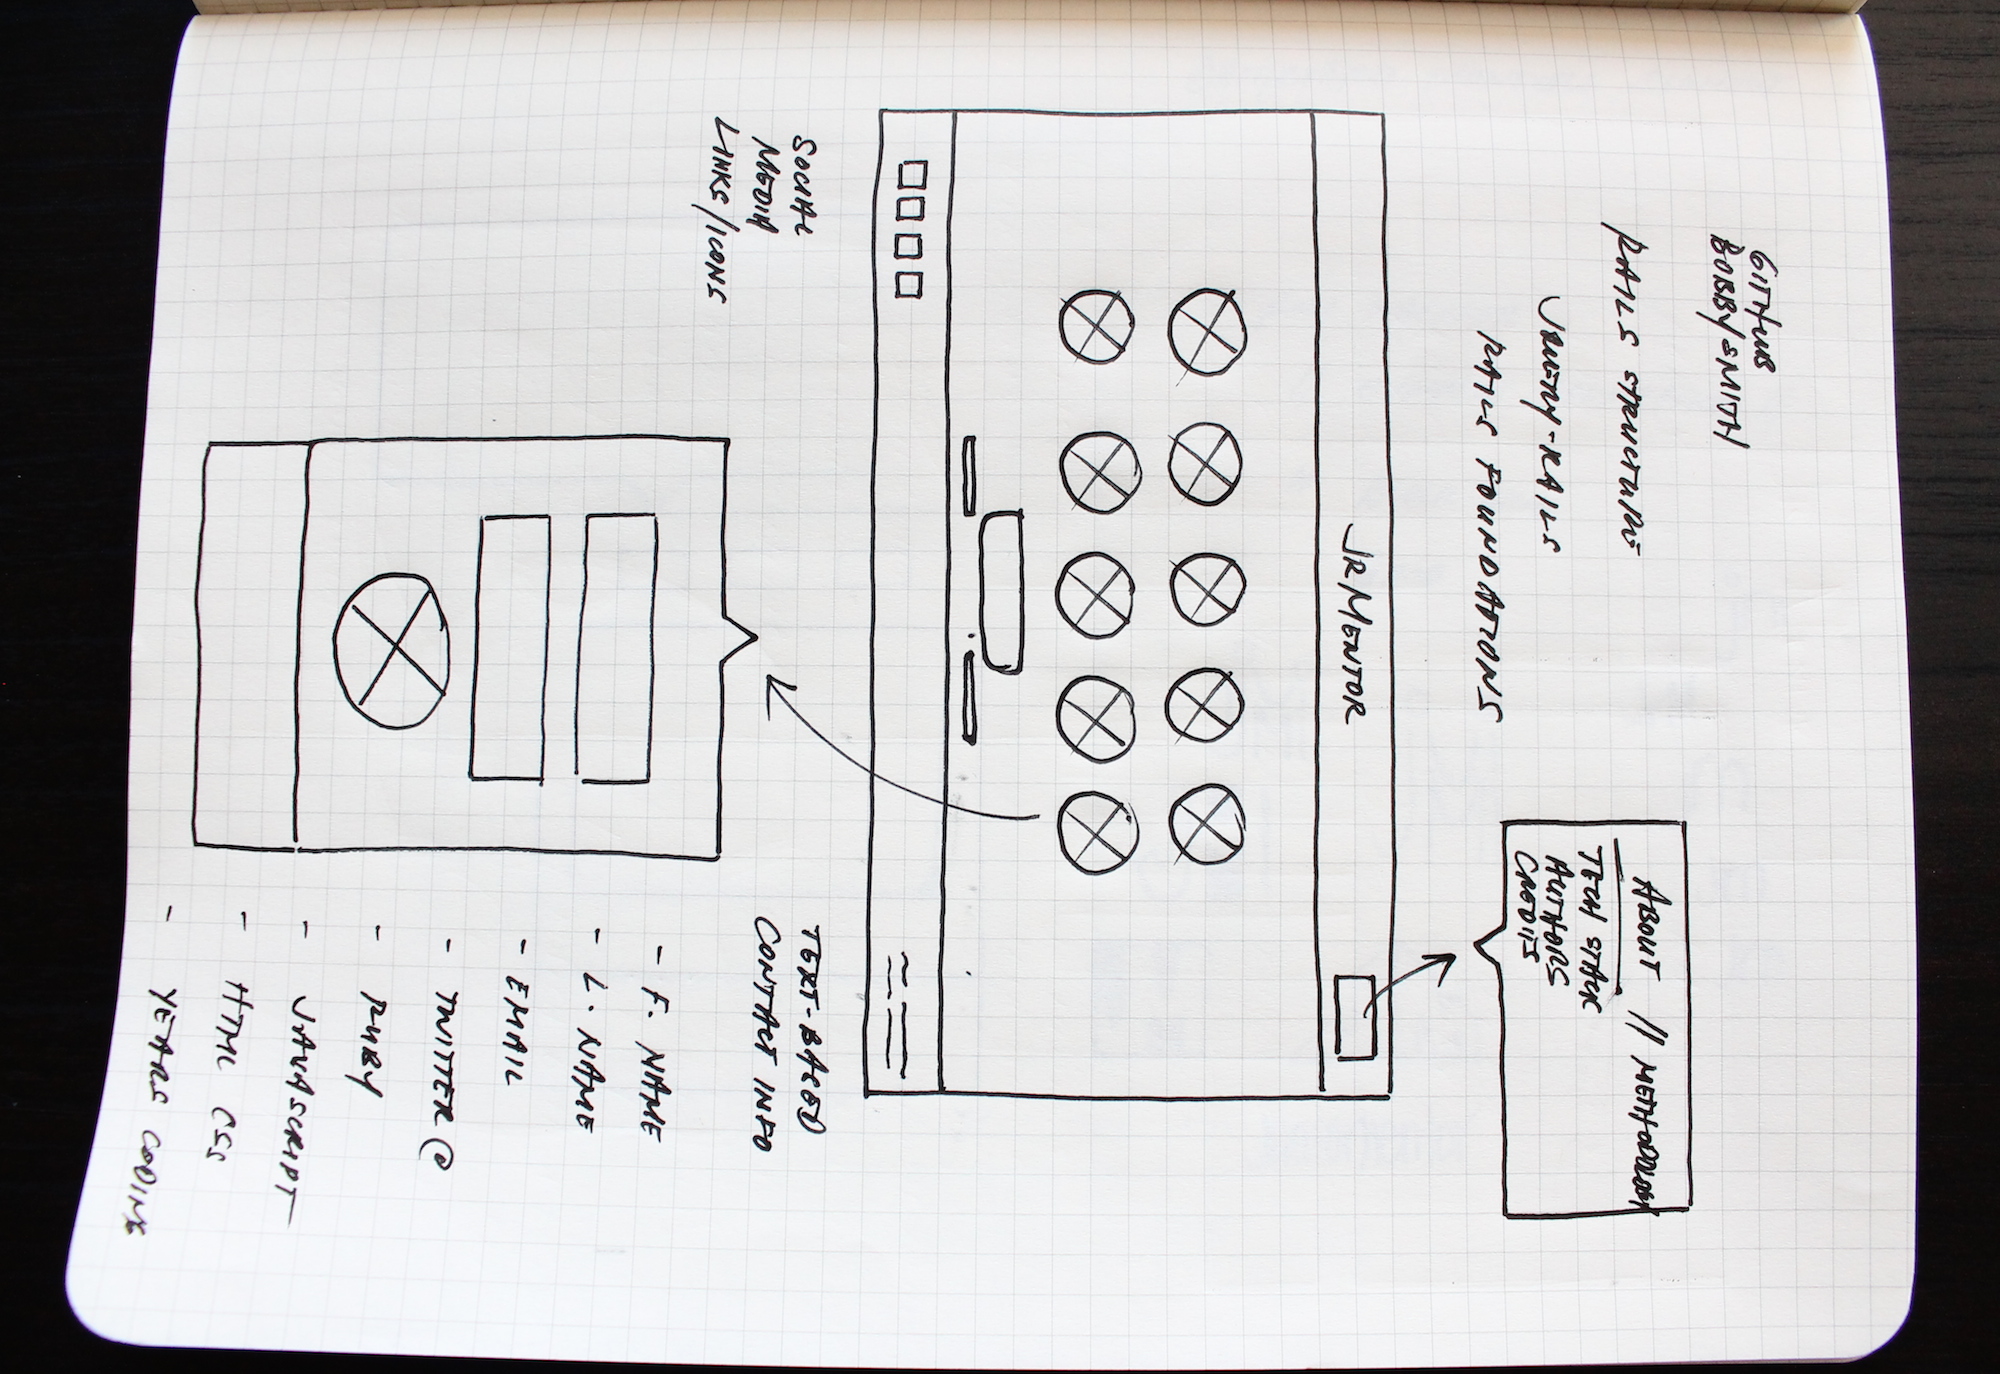 GITHUB
BOBBYSMITH
RAILS STRUCTURE
VARIETY-RAILS
RAILS FOUNDATIONS
ABOUT // METHODOLOGY
TECH STACK
AUTHORS
CREDITS
JRMENTOR
SOCIAL
MEDIA
LINKS/ICONS
TEXT-BASED
CONTACT INFO
- F. NAME
- L. NAME
- EMAIL
- TWITTER @
- RUBY
- JAVASCRIPT
- HTML CSS
- YEARS CODING